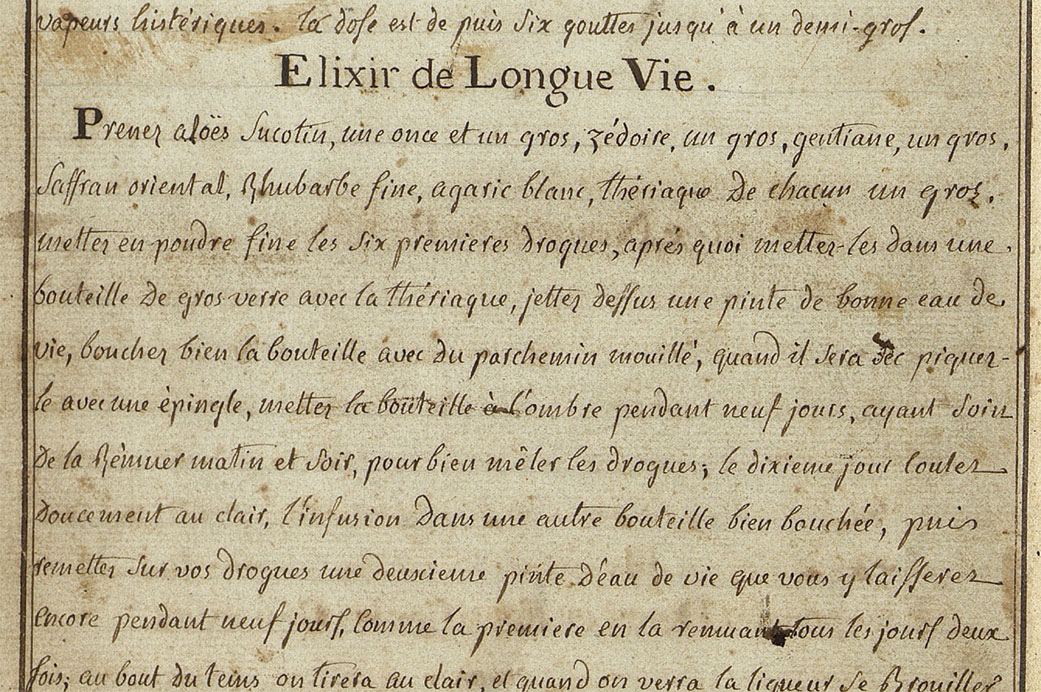 vapeurs histériques. la dose est de puis six gouttes jusqu'à un demi-gros.
Elixir de Longue Vie.
Prenez aloës Sucotin, une once et un gros, zédoire, un gros, gentiane, un gros,
Saffran oriental, Rhubarbe fine, agaric blanc, thériaque De chacun un gros.
mettez en poudre fine les six premieres drogues, aprés quoi mettez-les dans une
bouteille De gros verre avec la thériaque, jettez dessus une pinte de bonne eau de
vie, bouchez bien la bouteille avec du parchemin mouillé, quand il sera sec piquez-
le avec une épingle, mettez la bouteille à l'ombre pendant neuf jours, ayant soin
De la Rémuer matin et soir, pour bien mêler les drogues; le dixieme jour coulez
Doucement au clair, l'infusion Dans une autre bouteille bien bouchée, puis
remettez sur vos drogues une deuxieme pinte d'éau de vie que vous y laisserez
encore pendant neuf jours, comme la premiere en la remuant tous les jours deux
fois; au bout du tems on tirera au clair, et quand on verra la liqueur se Brouiller